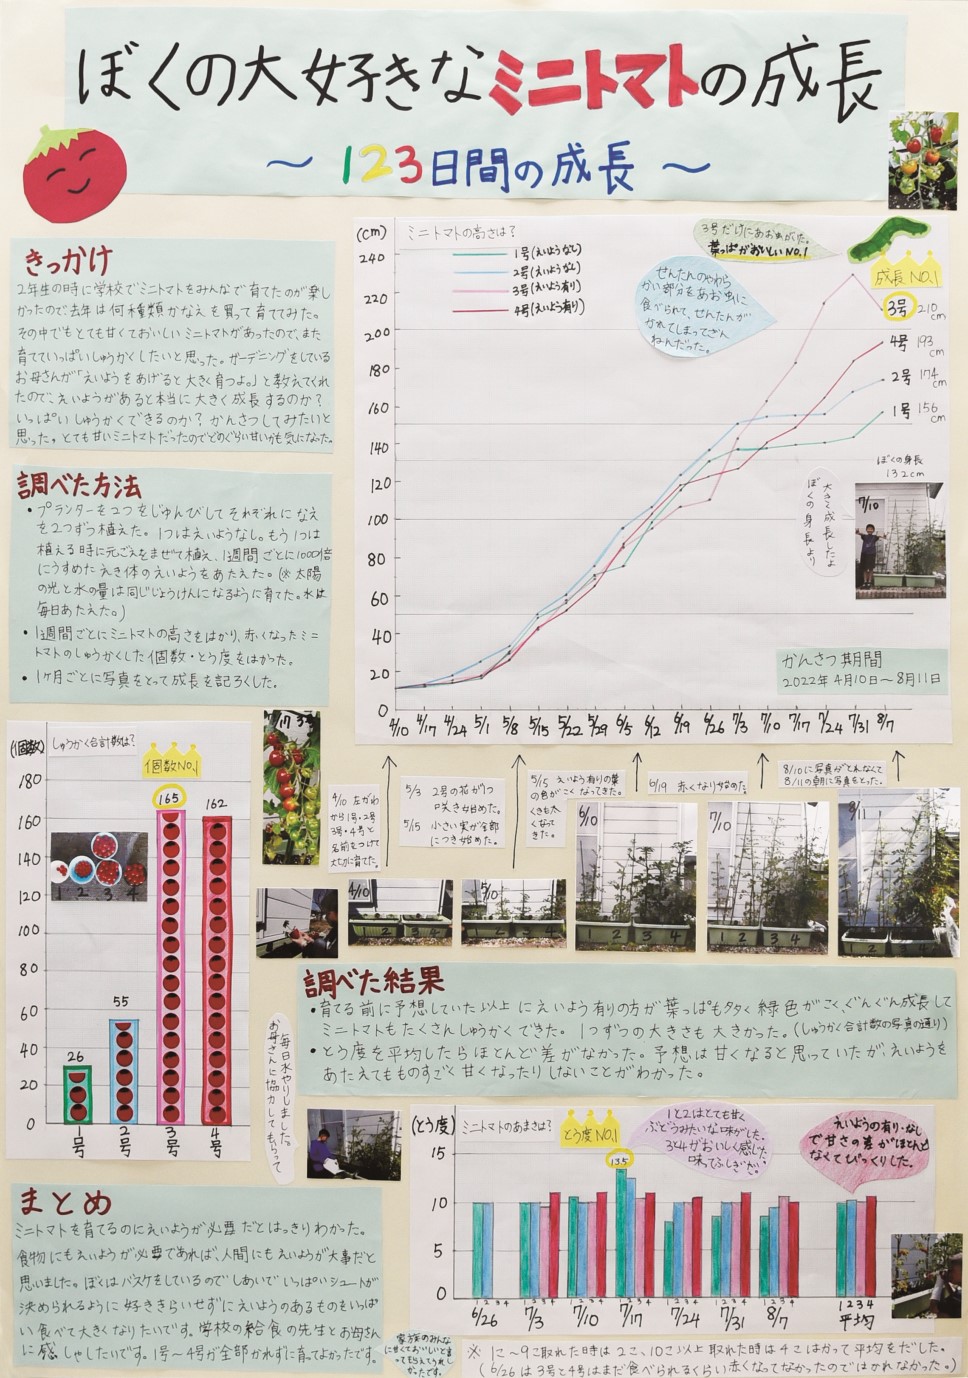 ぼくの大好きなミニトマトの成長
～123日間の成長～
きっかけ
2年生の時に学校でミニトマトをみんなで育てたのが楽し
かったので、去年は何種類かなえを買って育ててみた。
その中でもとても甘くておいしいミニトマトがあったので、また
育てていっぱいしゅうかくしたいと思った。ガーデニングをしている
お母さんが「えいようをあげると大きく育つよ。」と教えてくれ
たので、えいようがあると本当に大きく成長するのか?
いっぱいしゅうかくできるのか? かんさつしてみたいと
思った。とても甘いミニトマトだったのでどのぐらい甘いかも気になった。
調べた方法
・プランターを2つをじゅんびしてそれぞれになえ
を2つずつ植えた。1つはえいようなし。もう1つは
植える時に元ごえをまぜて植え、1週間ごとに1000倍
にうすめたえき体のえいようをあたえた。(※太陽
の光と水の量は同じじょうけんになるように育てた。水は
毎日あたえた。)
・1週間ごとにミニトマトの高さをはかり、赤くなったミニ
トマトのしゅうかくした個数・とう度をはかった。
・1ヶ月ごとに写真をとって成長を記ろくした。
(cm)
ミニトマトの高さは?
1号(えいようなし)
2号(えいようなし)
3号(えいよう有り)
4号(えいよう有り)
3号だけにあおむしがいた。
葉っぱがおいしいNO.1
せんたんのやわら
かい部分をあお虫に
食べられて、せんたんが
かれてしまってざん
ねんだった。
成長NO.1
3号 210cm
4号 193cm
2号 174cm
1号 156cm
240
220
200
180
160
140
120
100
80
60
40
20
0
ぼくの身長
132cm
7/10
ぼくの身長より
大きく成長したよ
かんさつ期間
2022年4月10日～8月11日
4/10 4/17 4/24 5/1 5/8 5/15 5/22 5/29 6/5 6/12 6/19 6/26 7/3 7/10 7/17 7/24 7/31 8/7
4/10 左がわ
から1号・2号
3号・4号と
名前をつけて
大切に育てた。
5/3 2号の花が1つ
咲き始めた。
5/15 小さい実が全部
につき始めた。
5/15 えいよう有りの葉
の色がこくなってきた。
くきも太
くなって
きた。
6/19 赤くなり始めた。
8/10に写真がとれなくて
8/11の朝に写真をとった。
7/17 3号
4/10
5/10
1 2 3 4
6/10
1 2 3 4
7/10
1 2 3 4
8/11
2 4
(個数)
しゅうかく合計数は?
個数NO.1
180
160
140
120
100
80
60
40
20
0
26
55
165
162
1 2 3 4
1号 2号 3号 4号
毎日水やりしました。
お母さんに協力してもらって
調べた結果
・育てる前に予想していた以上にえいよう有りの方が葉っぱも多く緑色がこく、ぐんぐん成長して
ミニトマトもたくさんしゅうかくできた。1つずつの大きさも大きかった。(しゅうかく合計数の写真の通り)
・とう度を平均したらほとんど差がなかった。予想は甘くなると思っていたが、えいようを
あたえてもものすごく甘くなったりしないことがわかった。
(とう度)
ミニトマトのあまさは?
とう度NO.1
13.5
1と2はとても甘く
ぶどうみたいな味がした。
3と4がおいしく感じた。
味ってふしぎだな。
えいようの有り・なし
で甘さの差がほとんど
なくてびっくりした。
15
10
5
0
1 2 3 4
6/26 7/3 7/10 7/17 7/24 7/31 8/7 平均
※1こ～9こ取れた時は2こ、10こ以上取れた時は4こはかって平均をだした。
(6/26は3号と4号はまだ食べられるくらい赤くなってなかったのではかれなかった。)
まとめ
ミニトマトを育てるのにえいようが必要だとはっきりわかった。
食物にもえいようが必要であれば、人間にもえいようが大事だと
思いました。ぼくはバスケをしているのでしあいでいっぱいシュートが
決められるように好ききらいせずにえいようのあるものをいっぱ
い食べて大きくなりたいです。学校の給食の先生とお母さん
に感しゃしたいです。1号～4号が全部かれずに育ってよかったです。
家族のみんな
に甘くておいしいと言っ
てもらえてうれし
かったです。